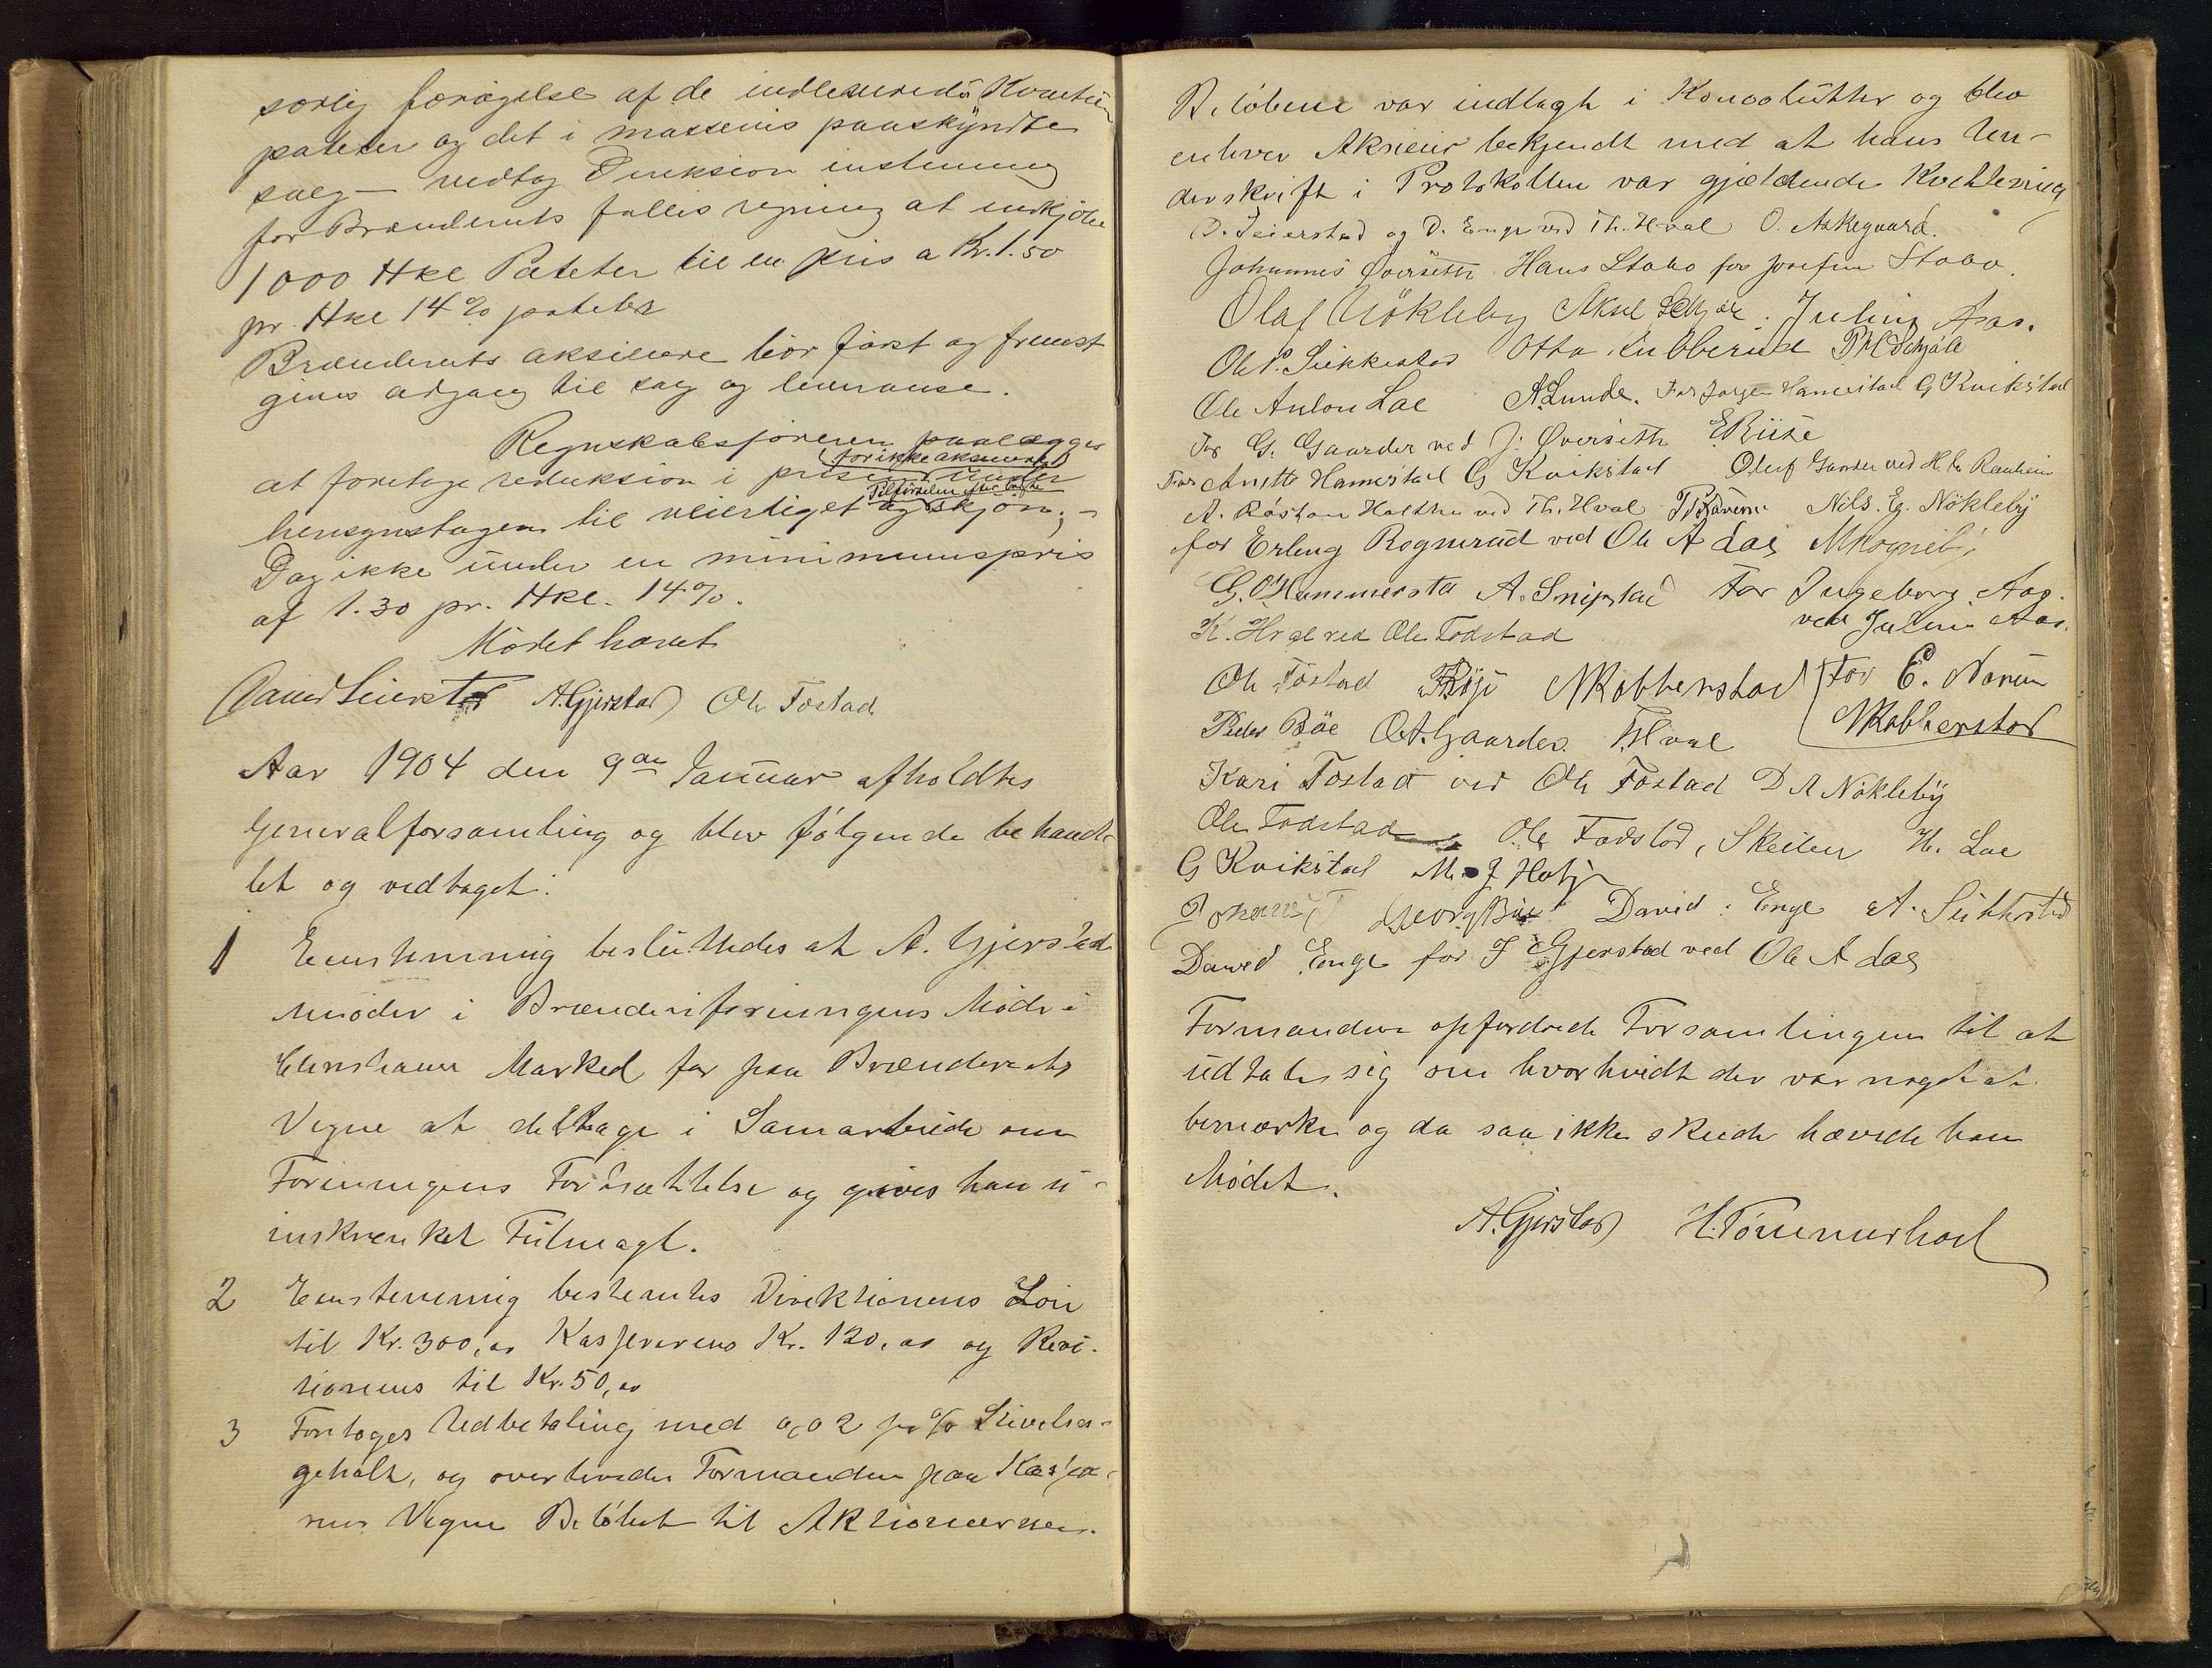 sørlig forøgelse af de indleverede Kvanta
poteter og det i massevis paaskyndte
salg — vedtog Direksion instemmig
for Brænderiets fælles regning at indkjøbe
1000 Hkl Poteter til en pris a Kr. 1.50
pr. Hkl 14% poteter
Brænderiets aksieiere bør først og fremst
gives adgang til salg og leveranse.
Regnskabsføreren paalægges
(for ikke aksieiere)
at foretage reduksion i prisen under
Tilførselen
hensynstagen til veierliget og skjøn; -
Dog ikke under en minimumspris
af 1.30 pr. Hkl. 14%.
Mødet hævet
A. Gjerstad Ole Fostad
Aar 1904 den 9de Januar afholdtes
Generalforsamling og blev følgende behand-
let og vedtaget:
1 Eenstemmig besluttedes at A. Gjerstad
møder i Brænderiforeningens Møde i
Marked for paa Brænderiets
Vegne at deltage i Samarbeide om
Foreningens Fortsættelse og gives han u-
inskrænket Fulmagt.
2 Eenstemmig bestemtes Direktionens Løn
til Kr. 300,00 Kassererens Kr. 120,00 og Revi-
tionens til Kr. 50,00
3 Foretoges Udbetaling med 0,02 pr % Stivelses-
gehalt, og overleverede Formanden paa Kasse-
rens Vegne Beløbet til Aktionærerne.
Beløbene var indlagt i Konvolutter og blev
enhver Aksieier bekjendt med at hans Un-
derskrift i Protokollen var gjældende Kvittering
D. Seierstad og D. Enge ved Th. Hval O. Askegaard.
Johannes Øverseth Hans Stabo for Josefine Stabo.
Olaf Nökleby Aksel Julius Aas.
Ole P. Sukkestad Otto Kubberud
Ole Anton Loe A. Lunde. For Jørgen Hamerstad G Kvikstad
For G. Gaarder ved J. Øverseth E Riise
For Anette Hamerstad G Kvikstad Oluf Gaarder ved
A. Røstøen Holthe ved Th. Hval Nils. Eg. Nökleby
for Erling Rognerud ved Ole A Loe
G. O Hammerstad A. Snipstad For Ingeborg Aas.
ved Julius Aas.
K. Hval ved Ole Fodstad
Ole Fostad N Kobberstad For E. Narum
Peder Böe O. A. Gaarder. Th Hval N Kobberstad
Kari Fostad ved Ole Fostad D A Nökleby
Ole Fodstad Ole Fodstad, Skeilen H. Loe
G Kvikstad M. J
Georg Bøe David Enge A. Sukkestad
David Enge for J Gjerstad ved Ole A Loe
Formanden opfordrede Forsamlingen til at
udtale sig om hvorhvidt der var noget at
bemærke og da saa ikke skede hævede han
Mødet.
A. Gjerstad H. Tömmerhol